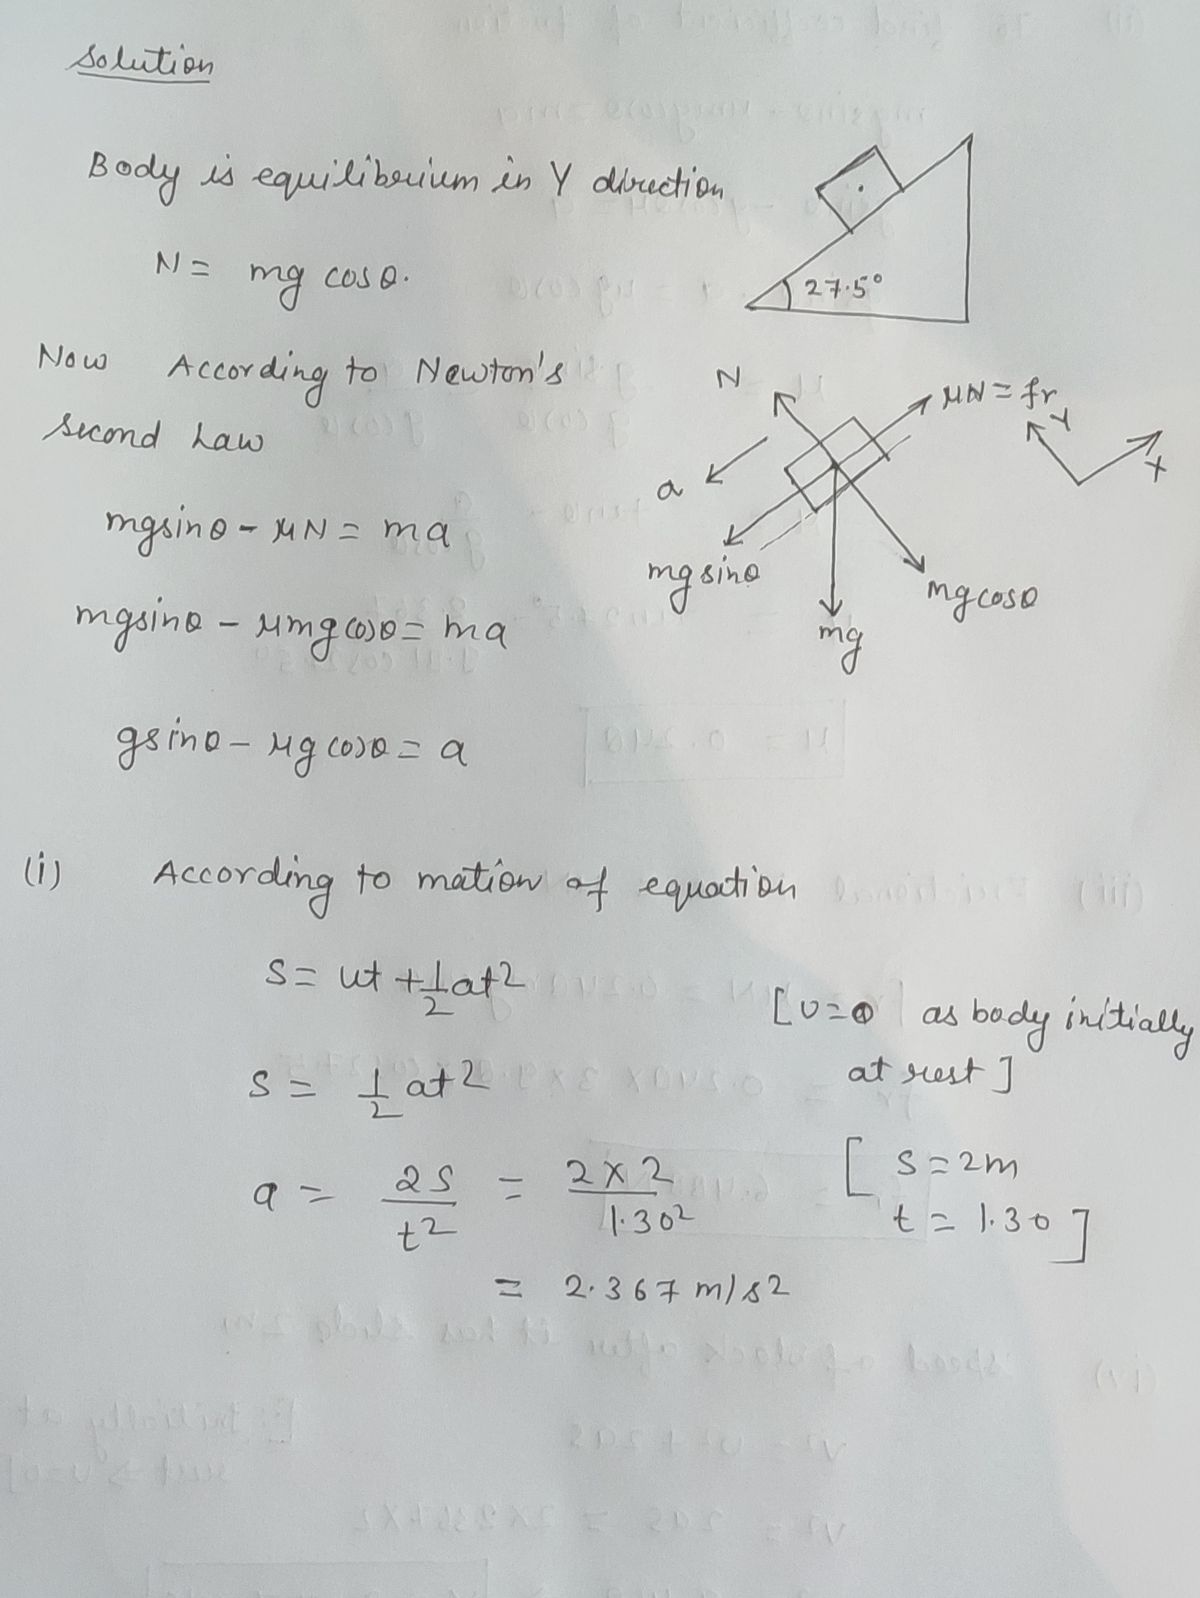 Solution
Body is equilibrium in Y direction
N = mg cosθ.
27.5°
Now According to Newton's
Second Law
N
μN = fr
Y
X
a
mg sinθ
mg
mg cosθ
mgsinθ - μN = ma
mgsinθ - μmg cosθ = ma
gsinθ - μg cosθ = a
(i) According to mation of equation
S = ut + 1/2 at2
[U=0 as body initially
at rest]
S = 1/2 at2
a = 2S/t2 = 2 x 2/1.302
[S = 2m
t = 1.30]
= 2.367 m/s2